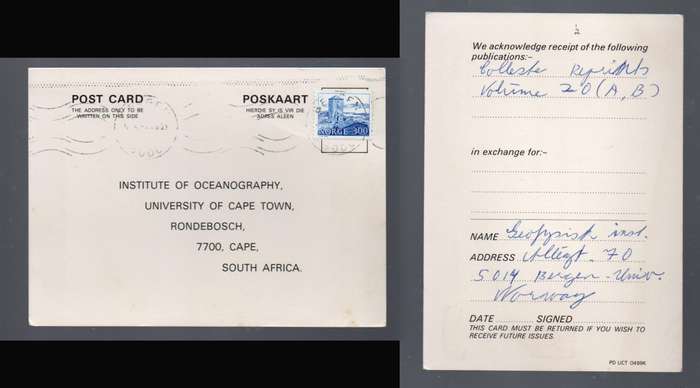 POST CARD
THE ADDRESS ONLY TO BE
WRITTEN ON THIS SIDE
POSKAART
HIERDIE SY IS VIR DIE
ADRES ALLEEN
NORGE 300
INSTITUTE OF OCEANOGRAPHY,
UNIVERSITY OF CAPE TOWN,
RONDEBOSCH,
7700, CAPE,
SOUTH AFRICA.
We acknowledge receipt of the following
publications:-
Collects Reprints
Volume 20 (A, B)
in exchange for:-
NAME Geofysisk inst.
ADDRESS Allégt. 70
5014 Bergen - Univ.
Norway
DATE SIGNED
THIS CARD MUST BE RETURNED IF YOU WISH TO
RECEIVE FUTURE ISSUES.
PD UCT 0499K